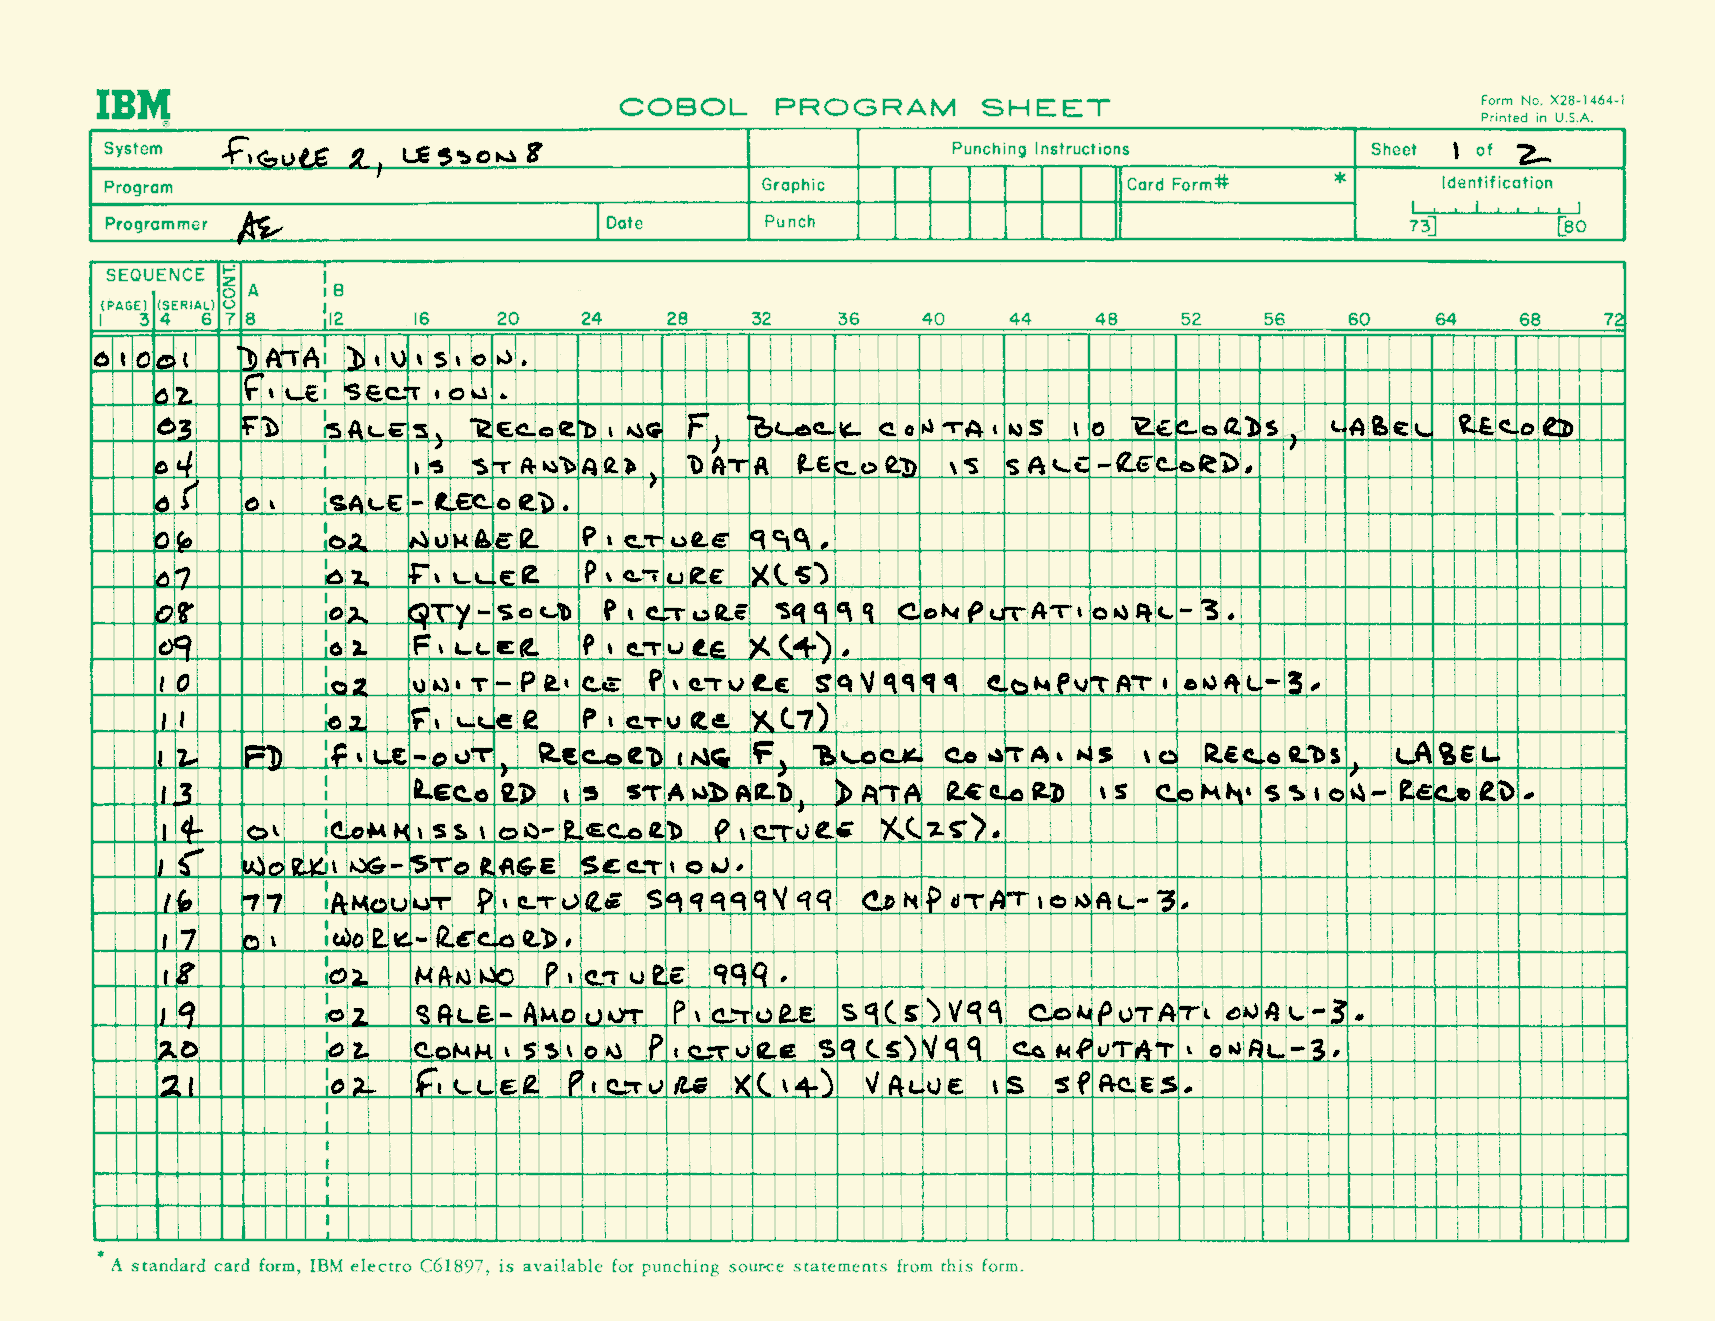 IBM COBOL PROGRAM SHEET Form No. X28-1464-1
Printed in U.S.A.
System FIGURE 2, LESSON 8 Punching Instructions Sheet 1 of 2
Program Graphic Card Form# * Identification
Programmer AE Date Punch 73] [80
SEQUENCE CONT. A B
(PAGE) (SERIAL)
1 3 4 6 7 8 12 16 20 24 28 32 36 40 44 48 52 56 60 64 68 72
01001 DATA DIVISION.
02 FILE SECTION.
03 FD SALES, RECORDING F, BLOCK CONTAINS 10 RECORDS, LABEL RECORD
04 IS STANDARD, DATA RECORD IS SALE-RECORD.
05 01 SALE-RECORD.
06 02 NUMBER PICTURE 999.
07 02 FILLER PICTURE X(5)
08 02 QTY-SOLD PICTURE S9999 COMPUTATIONAL-3.
09 02 FILLER PICTURE X(4).
10 02 UNIT-PRICE PICTURE S9V9999 COMPUTATIONAL-3.
11 02 FILLER PICTURE X(7)
12 FD FILE-OUT, RECORDING F, BLOCK CONTAINS 10 RECORDS, LABEL
13 RECORD IS STANDARD, DATA RECORD IS COMMISSION-RECORD.
14 01 COMMISSION-RECORD PICTURE X(25).
15 WORKING-STORAGE SECTION.
16 77 AMOUNT PICTURE S99999V99 COMPUTATIONAL-3.
17 01 WORK-RECORD.
18 02 MANNO PICTURE 999.
19 02 SALE-AMOUNT PICTURE S9(5)V99 COMPUTATIONAL-3.
20 02 COMMISSION PICTURE S9(5)V99 COMPUTATIONAL-3.
21 02 FILLER PICTURE X(14) VALUE IS SPACES.
* A standard card form, IBM electro C61897, is available for punching source statements from this form.